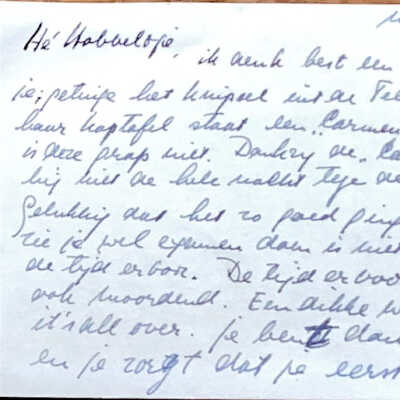 Hé Hobbeltje, ik denk best een
je; getuige het knipsel uit de Tel
haar kaptafel staat een "Carmen
is deze grap niet. Dankzij de "Ca
hij niet de hele nacht tege de
Gelukkig dat het zo goed ging
zie je wel examen doen is niet
de tijd ervoor. De tijd ervoor
ook moordend. Een dikke w
it's all over. je bent dan
en je zorgt dat je eerst